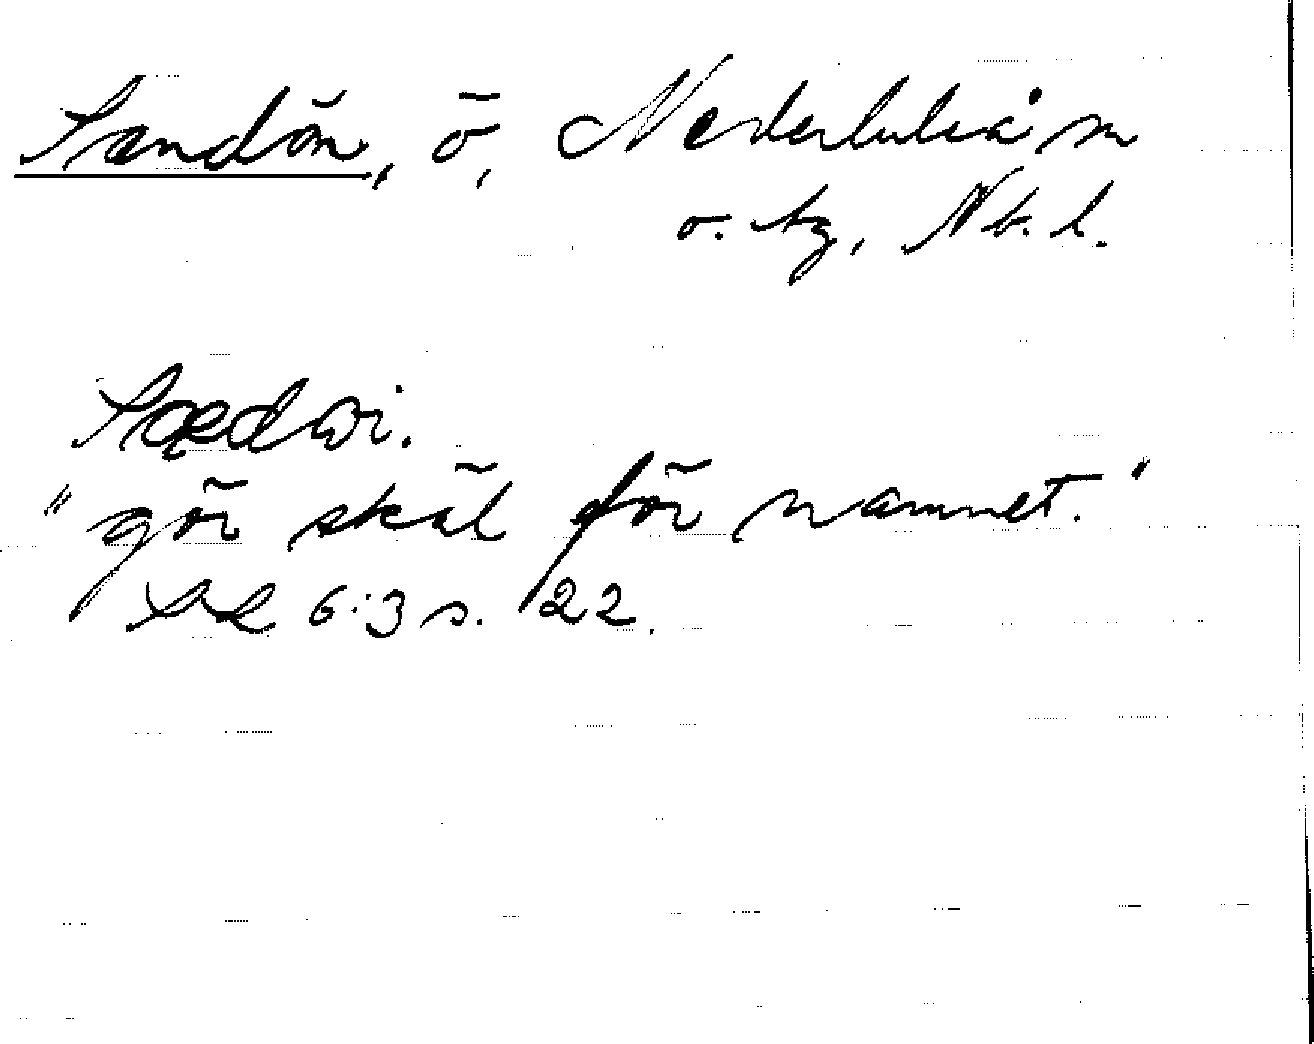 Sandön, ö, Nederluleå sn
o. tg, Nb. l.
"gör skäl för namnet."
SL 6:3 s. 22.